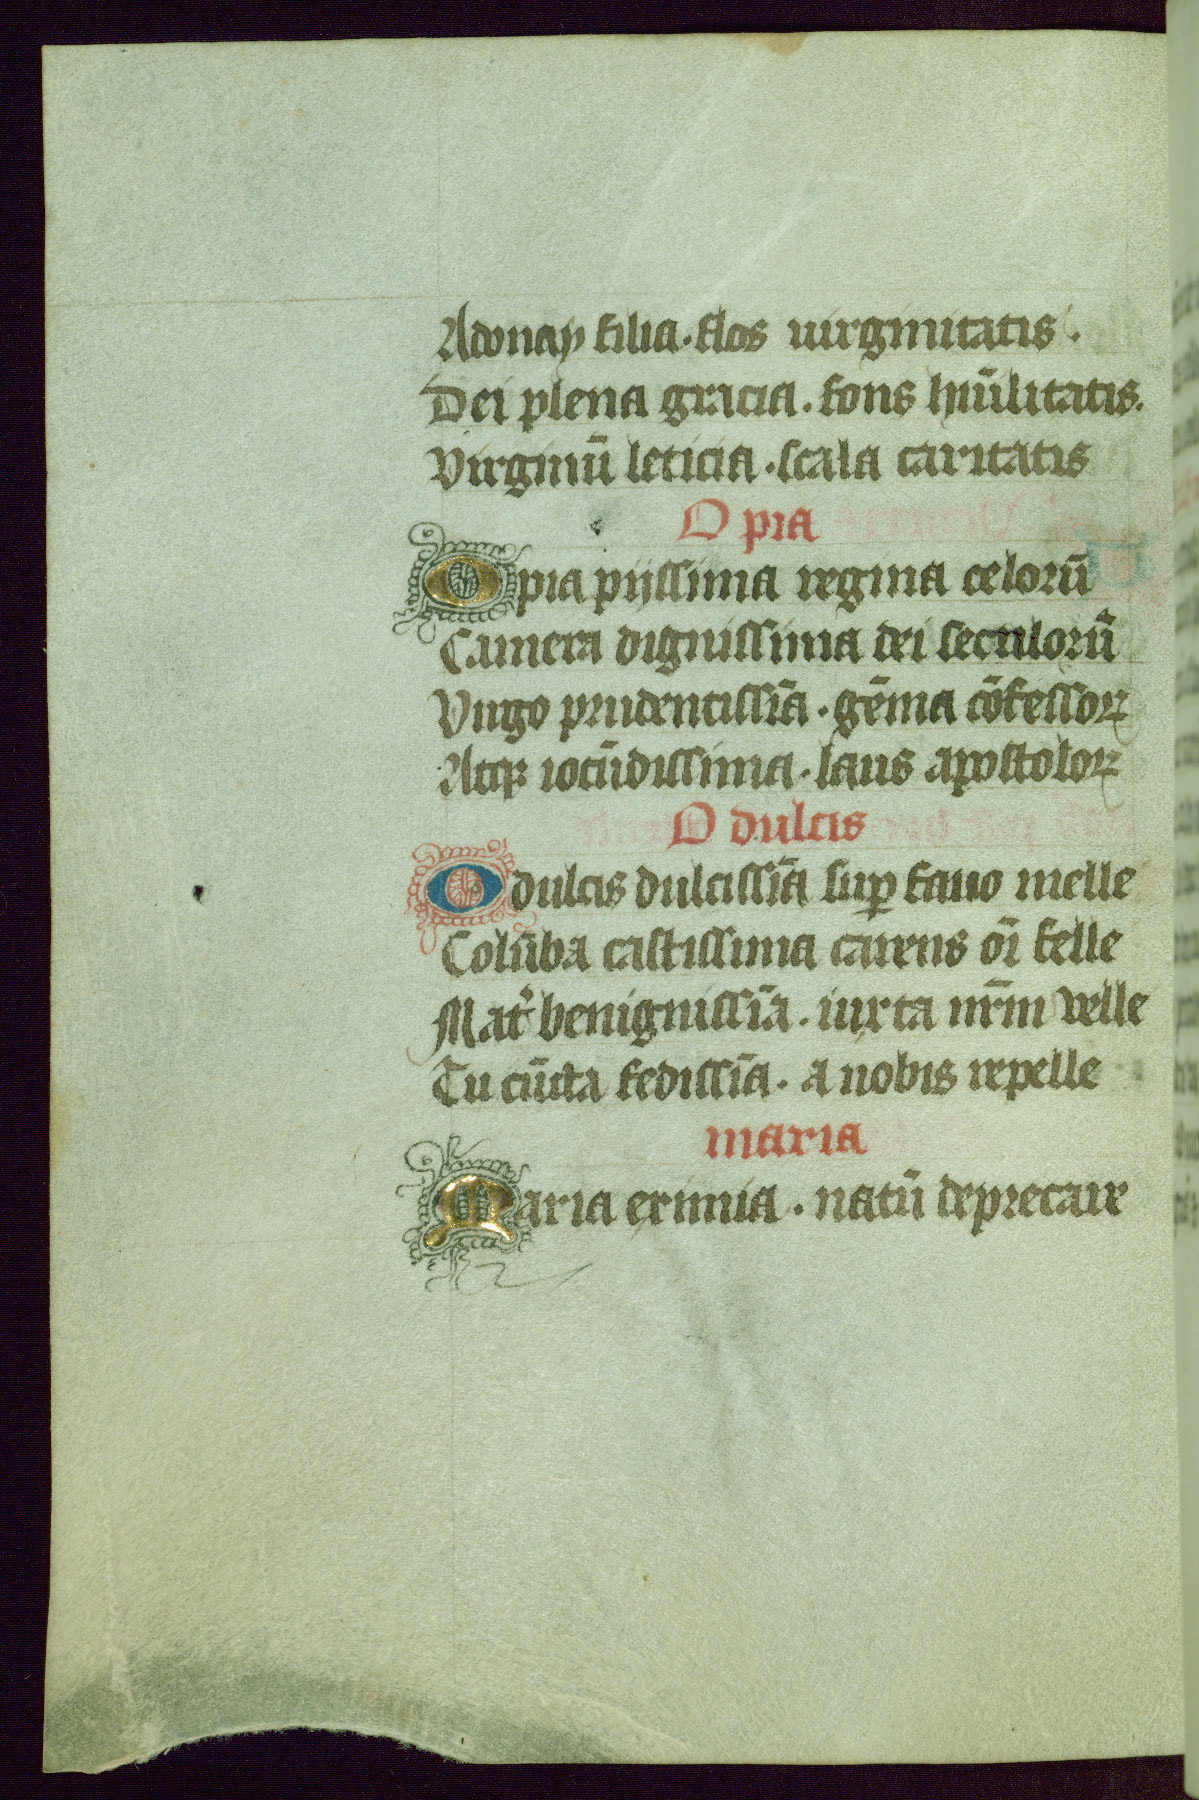 Adonay filia. flos uirginitatis.
Dei plena gracia. fons hūilitatis.
Virginū leticia. scala caritatis
O pia
O pia pijssima regina celorū
Camera dignissima dei seculorū
Virgo prudentissīa. gēma cōfessoꝝ
Atqꝫ iocūdissima. laus apostoloꝝ
O dulcis
O dulcis dulcissīa suꝑ fauo melle
Colūba castissima carens oī felle
Mat᷒ benignissīa. iuxta nr̄m velle
Tu cūcta fedissīa. a nobis repelle
maria
Maria eximia. natū deprecare